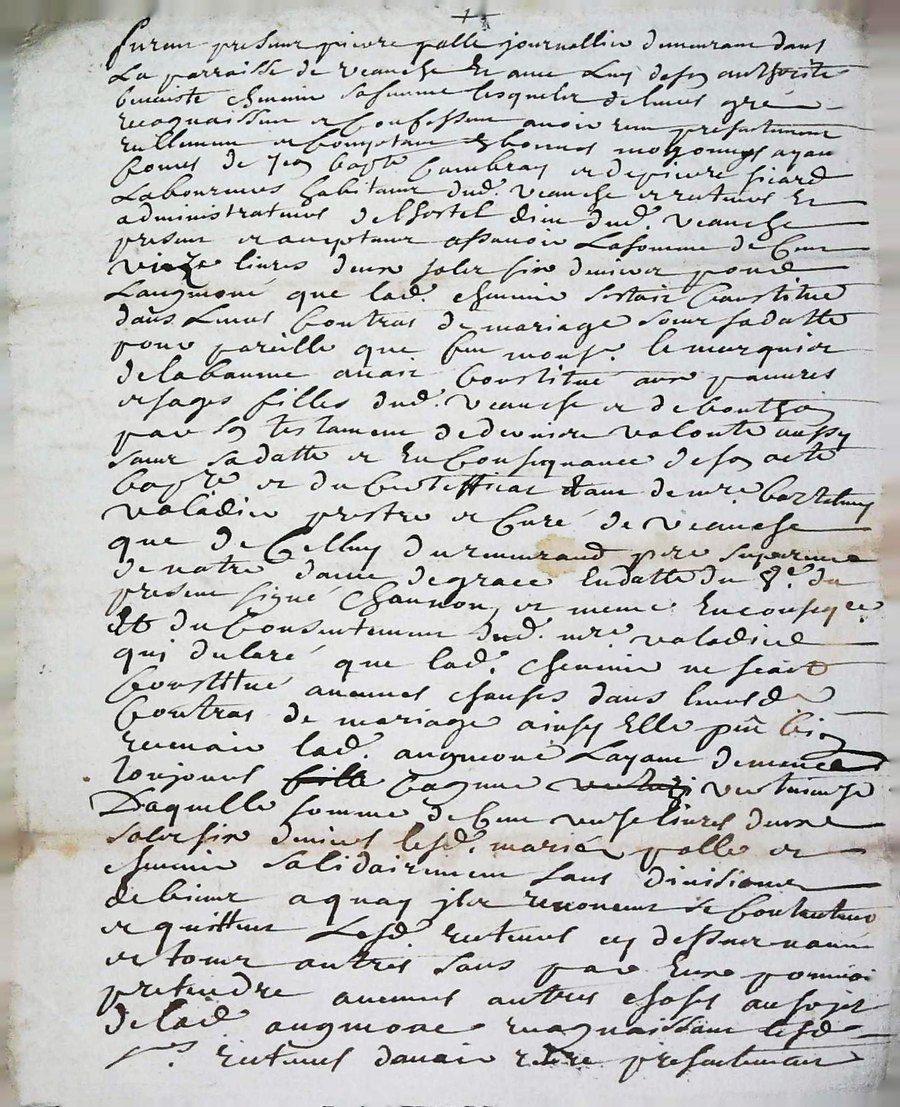 furent presens pierre palle journallier demeurant dans
La parraisse de veauche Et avec Luy de son authorité
benoiste chemin sa femme lesquels de leurs gré
recognaissent et confessent avoir reçu presentement
rellement et comptant
bonnes de Jean bapte Cambray et de pierre sicard
Laboureurs habitans dud. veauche et recteurs Et
administrateurs de lhostel dieu dud. veauche
present et acceptans assavoir La somme de Cent
livres deux solz six deniers pour
Laugmoné que lad. chemin sestait Constitué
dans Leurs Contras de mariage sous sa datte
pour pareille que feu monsr. le marquis
de la baume avait Constitué aux pauvres
et sages filles dud. veauche et de bouthéon
par son testament de derniere valonté aussy
sous sa datte et En Consequance de son acte
bapte et du Certifficat tant de mre barthelemy
valadier prestre et Curé de veauche
que de Celluy du reverend pere superieur
de notre dame de grace En datte du 8e. du
present signé Channon, et meme En conseqce.
du Consentement dud. mre valadier
qui declare que lad. chemin ne sest
Constitué aucunes chauses dans leurs d.
Contras de mariage ainsy Elle peut bien
recevoir lad. augmoné Layant demeuré
toujours fille Comme vertueuse
Laquelle somme de Cent livres deux
solz six deniers lesd. mariés palle et
chemin solidairement sans division
de biens a quoy ils renoncent se Contentent
et quittent Lesd recteurs cy dessus nommé
et tous autres sans par Eux pouvoir
pretendre aucunes autres choses au sojet
de lad augmone recognaissant lesd
rs. recteurs davair presentement